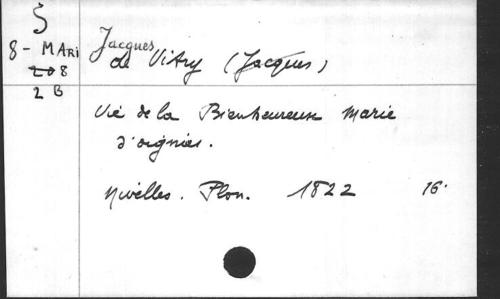 5
8 - MARI
2-8
2 B
Jacques
de Vitry (Jacques)
Vie de la Bienheureuse Marie
d'oignies.
Nivelles. Plon. 1822 16.